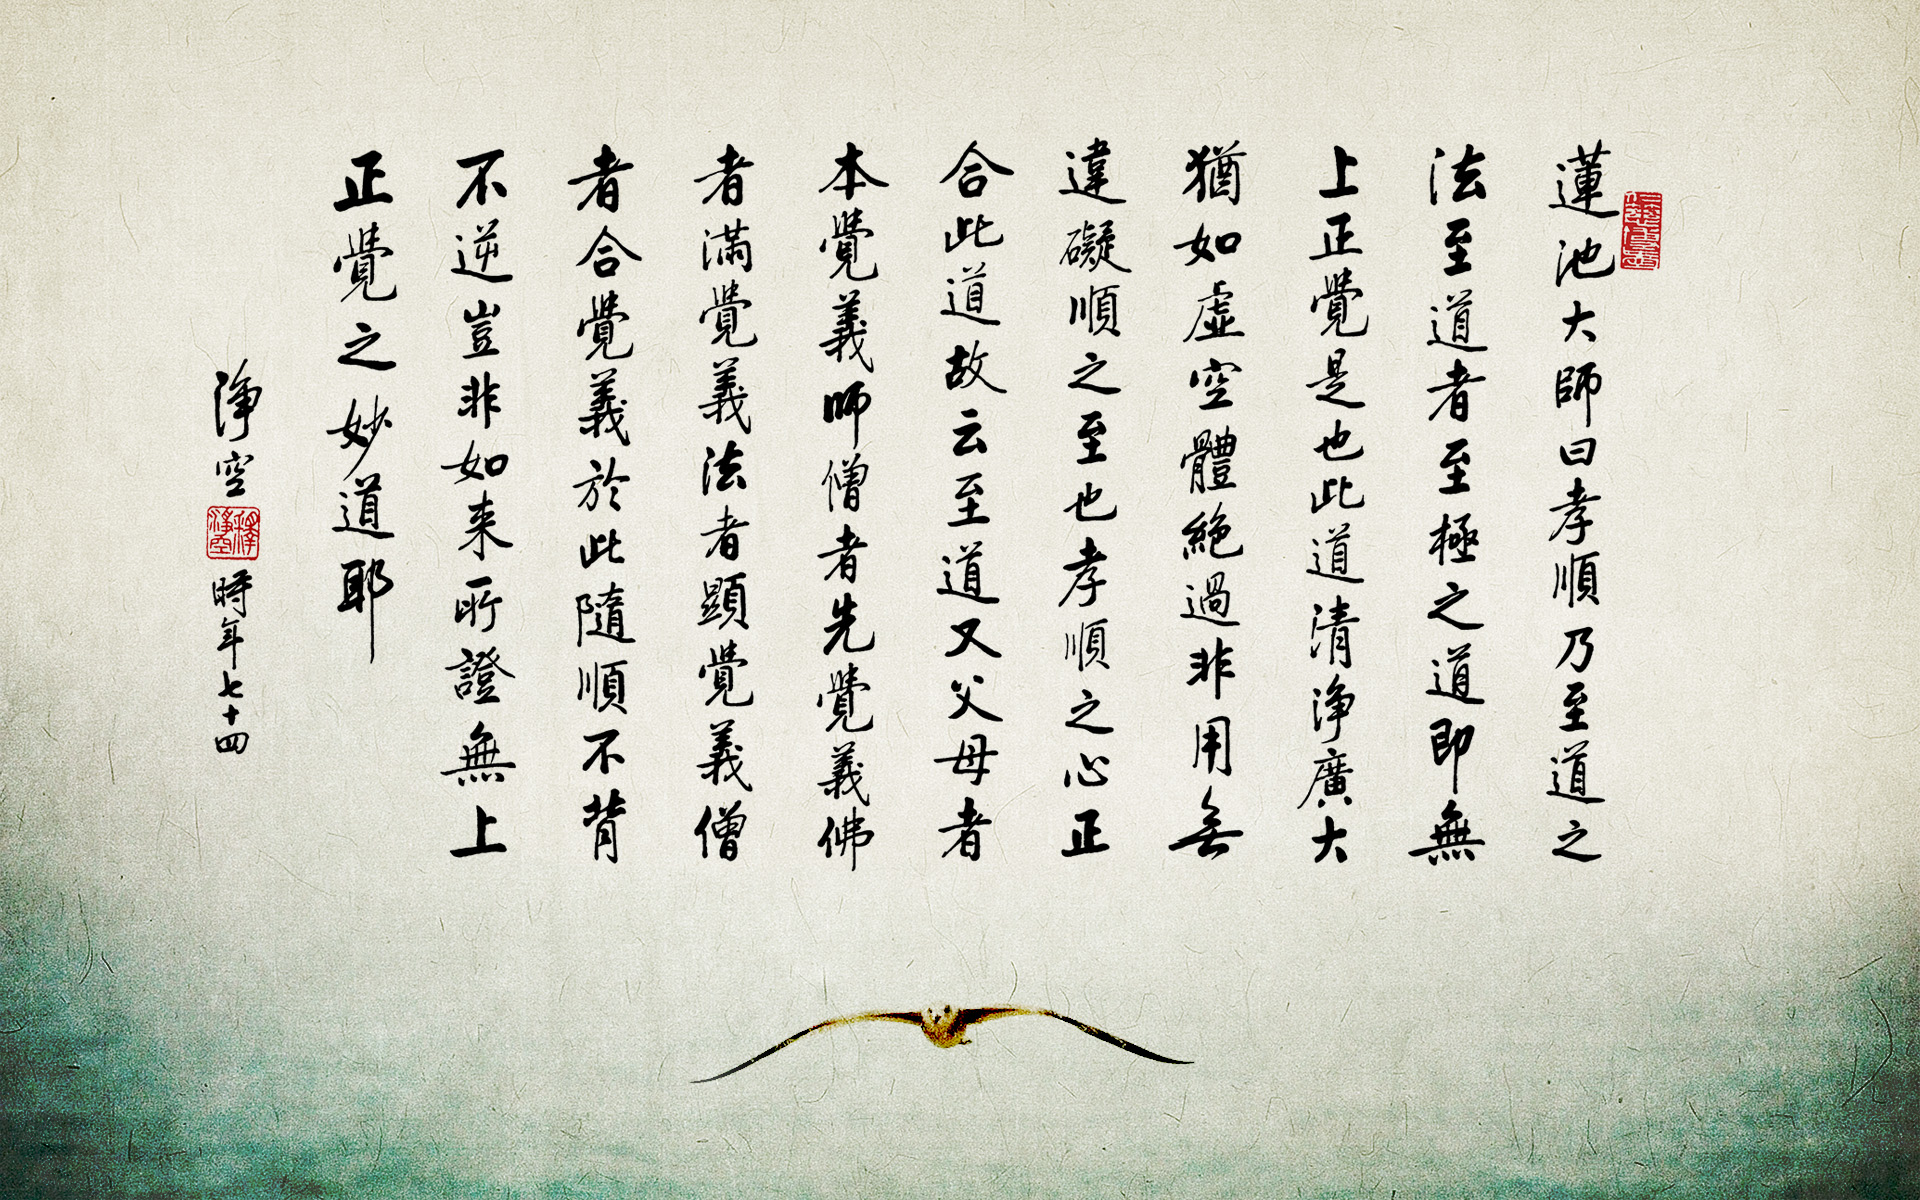 蓮池大師曰孝順乃至道之
法至道者至極之道即無
上正覺是也此道清淨廣大
猶如虛空體絕過非用無
違礙順之至也孝順之心正
合此道故云至道又父母者
本覺義師僧者先覺義佛
者滿覺義法者顯覺義僧
者合覺義於此隨順不背
不逆豈非如来所證無上
正覺之妙道耶
淨空
釋淨空
時年七十四